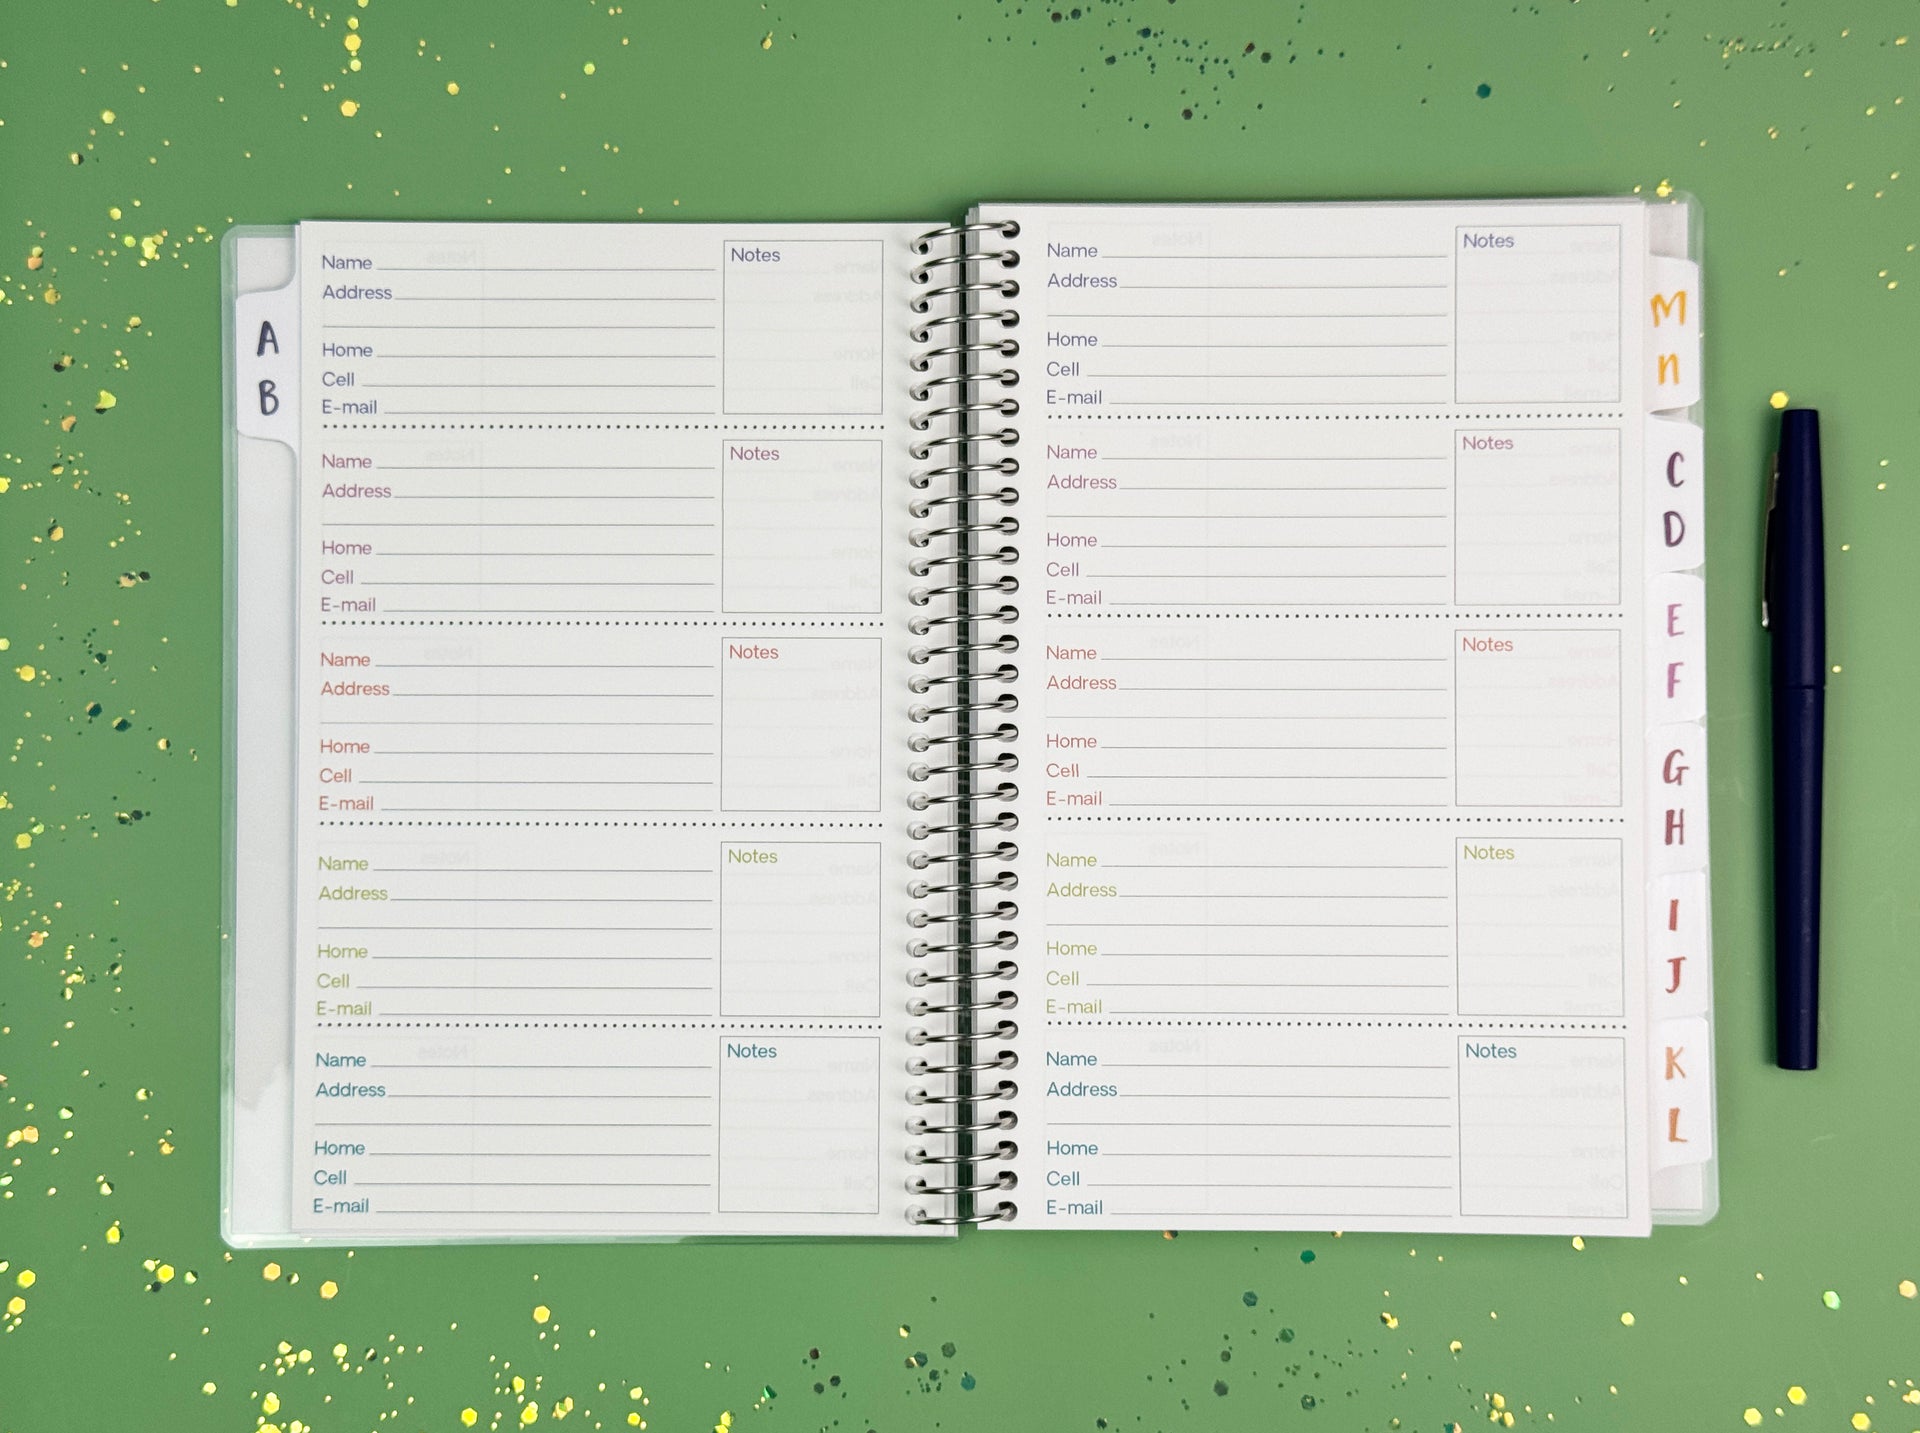 A
B
Name
Notes
Address
Home
Cell
E-mail
Name
Notes
Address
Home
Cell
E-mail
Name
Notes
Address
Home
Cell
E-mail
Name
Notes
Address
Home
Cell
E-mail
Name
Notes
Address
Home
Cell
E-mail
Name
Notes
Address
Home
Cell
E-mail
Name
Notes
Address
Home
Cell
E-mail
Name
Notes
Address
Home
Cell
E-mail
Name
Notes
Address
Home
Cell
E-mail
Name
Notes
Address
Home
Cell
E-mail
M
n
C
D
E
F
G
H
I
J
K
L